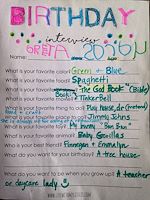 BIRTHDAY
interview
GRETA 2020
Name:
What is your favorite color? Green + Blue
What is your favorite food? Spaghetti
What is your favorite book? The God Book (Bible)
What is your favorite movie? TinkerBell
What is your favorite thing to do? Play house, dr (pretend)
What is your favorite place to go? Jimmy Johns
What is your favorite toy?
What is your favorite animal? Baby Gorillas
Who is your best friend? Finnegan + Emmalyn
What do you want for your birthday? A tree house
What do you want to be when you grow up? A teacher
or daycare lady